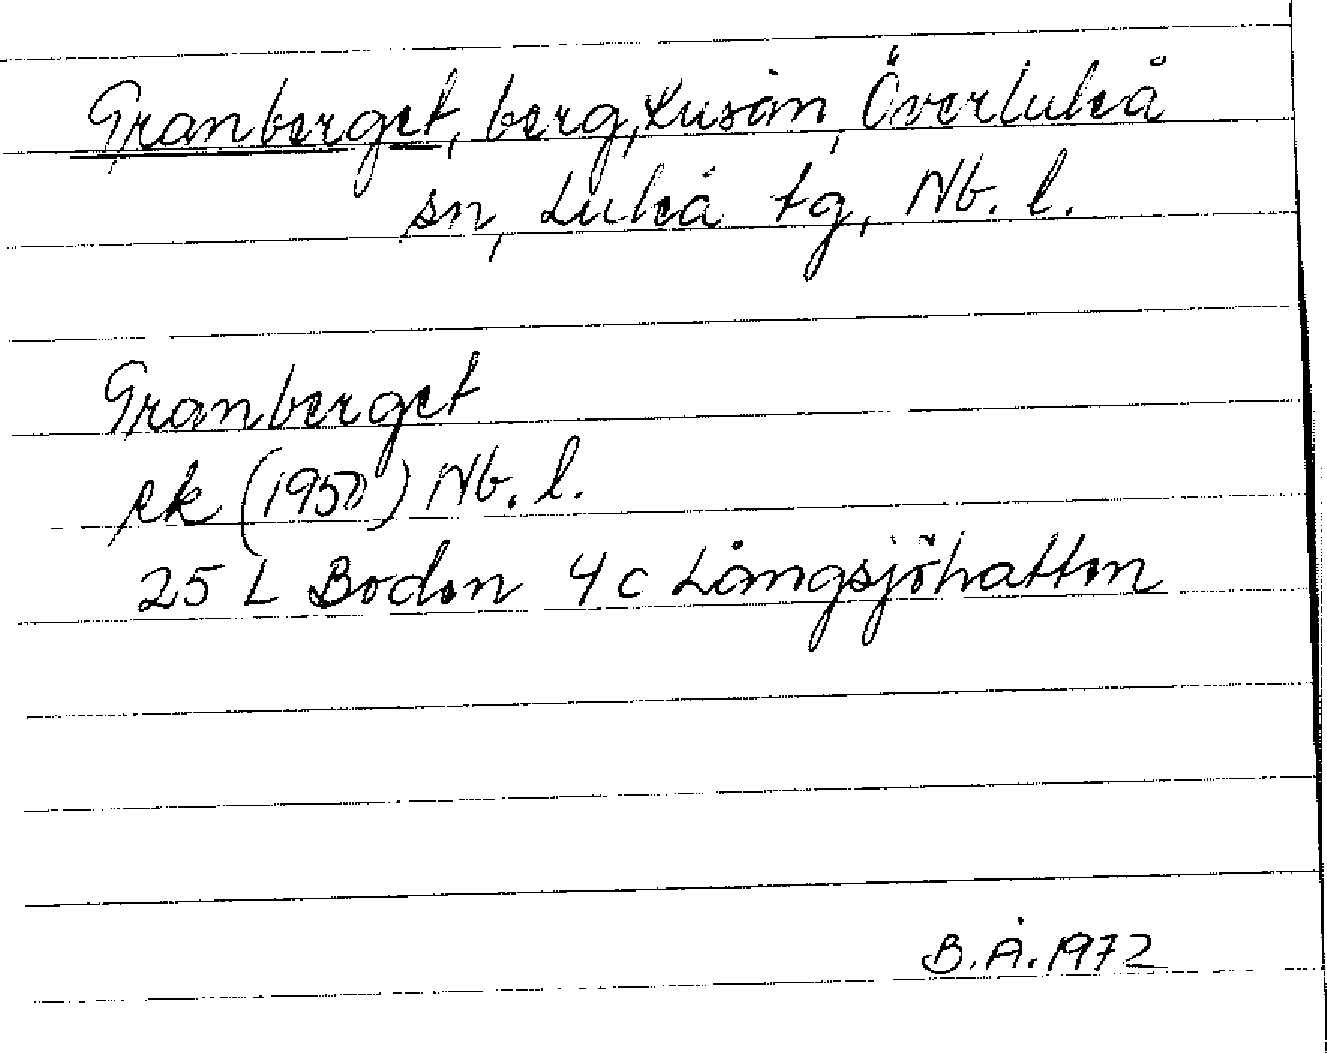 Granberget, berg, Lusån, Överluleå
sn, Luleå tg, Nb. l.
Granberget
ek (1950) Nb. l.
25 L Boden 4 c Långsjöhatten
B.Å. 1972